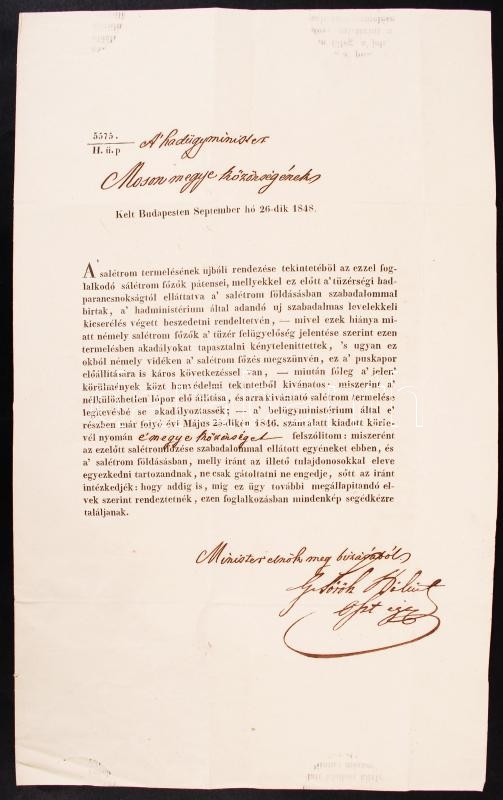 5575.
H. ü. p
A' hadügyminister
Moson megye közönségének
Kelt Budapesten September hó 26-dik 1848.
A' salétrom termelésének ujbóli rendezése tekintetéböl az ezzel fog-
lalkodó salétrom főzők pátensei, mellyekkel ez előtt a' tüzérségi had-
parancsnokságtól elláttatva a' salétrom földásásban szabadalommal
birtak, a' hadministerium által adandó uj szabadalmas levelekkeli
kicserélés végett beszedetni rendeltetvén, — mivel ezek hiánya mi-
att némely salétrom főzők a' tüzér felügyelőség jelentése szerint ezen
termelésben akadályokat tapasztalni kénytelenittettek, 's ugyan ez
okból némely vidéken a' salétrom főzés megszünvén, ez a' puskapor
előállitására is káros következéssel van, — mintán főleg a' jelen
körülmények közt honvédelmi tekintetből kivánatos miszerint a'
nélkülözhetlen lőpor elő állitása, és arra kivántató salétrom termelése
legkevésbé se akadályoztassék; — a' belügyministérium által e'
részben már folyó évi Május 23-dikán 1846. szám alatt kiadott körle-
vél nyomán e' megye közönséget felszólitom: miszerént
az ezelőtt salétromfőzése szabadalommal ellátott egyéneket ebben, és
a' salétrom földásásban, melly iránt az illető tulajdonosokkal eleve
egyezkedni tartozandnak, ne csak gátoltatni ne engedje, sőtt az iránt
intézkedjék: hogy addig is, mig ez ügy további megállapitandó el-
vek szerint rendeztetnék, ezen foglalkozásban mindenkép segédkézre
találjanak.
Minister elnök meg bizásából